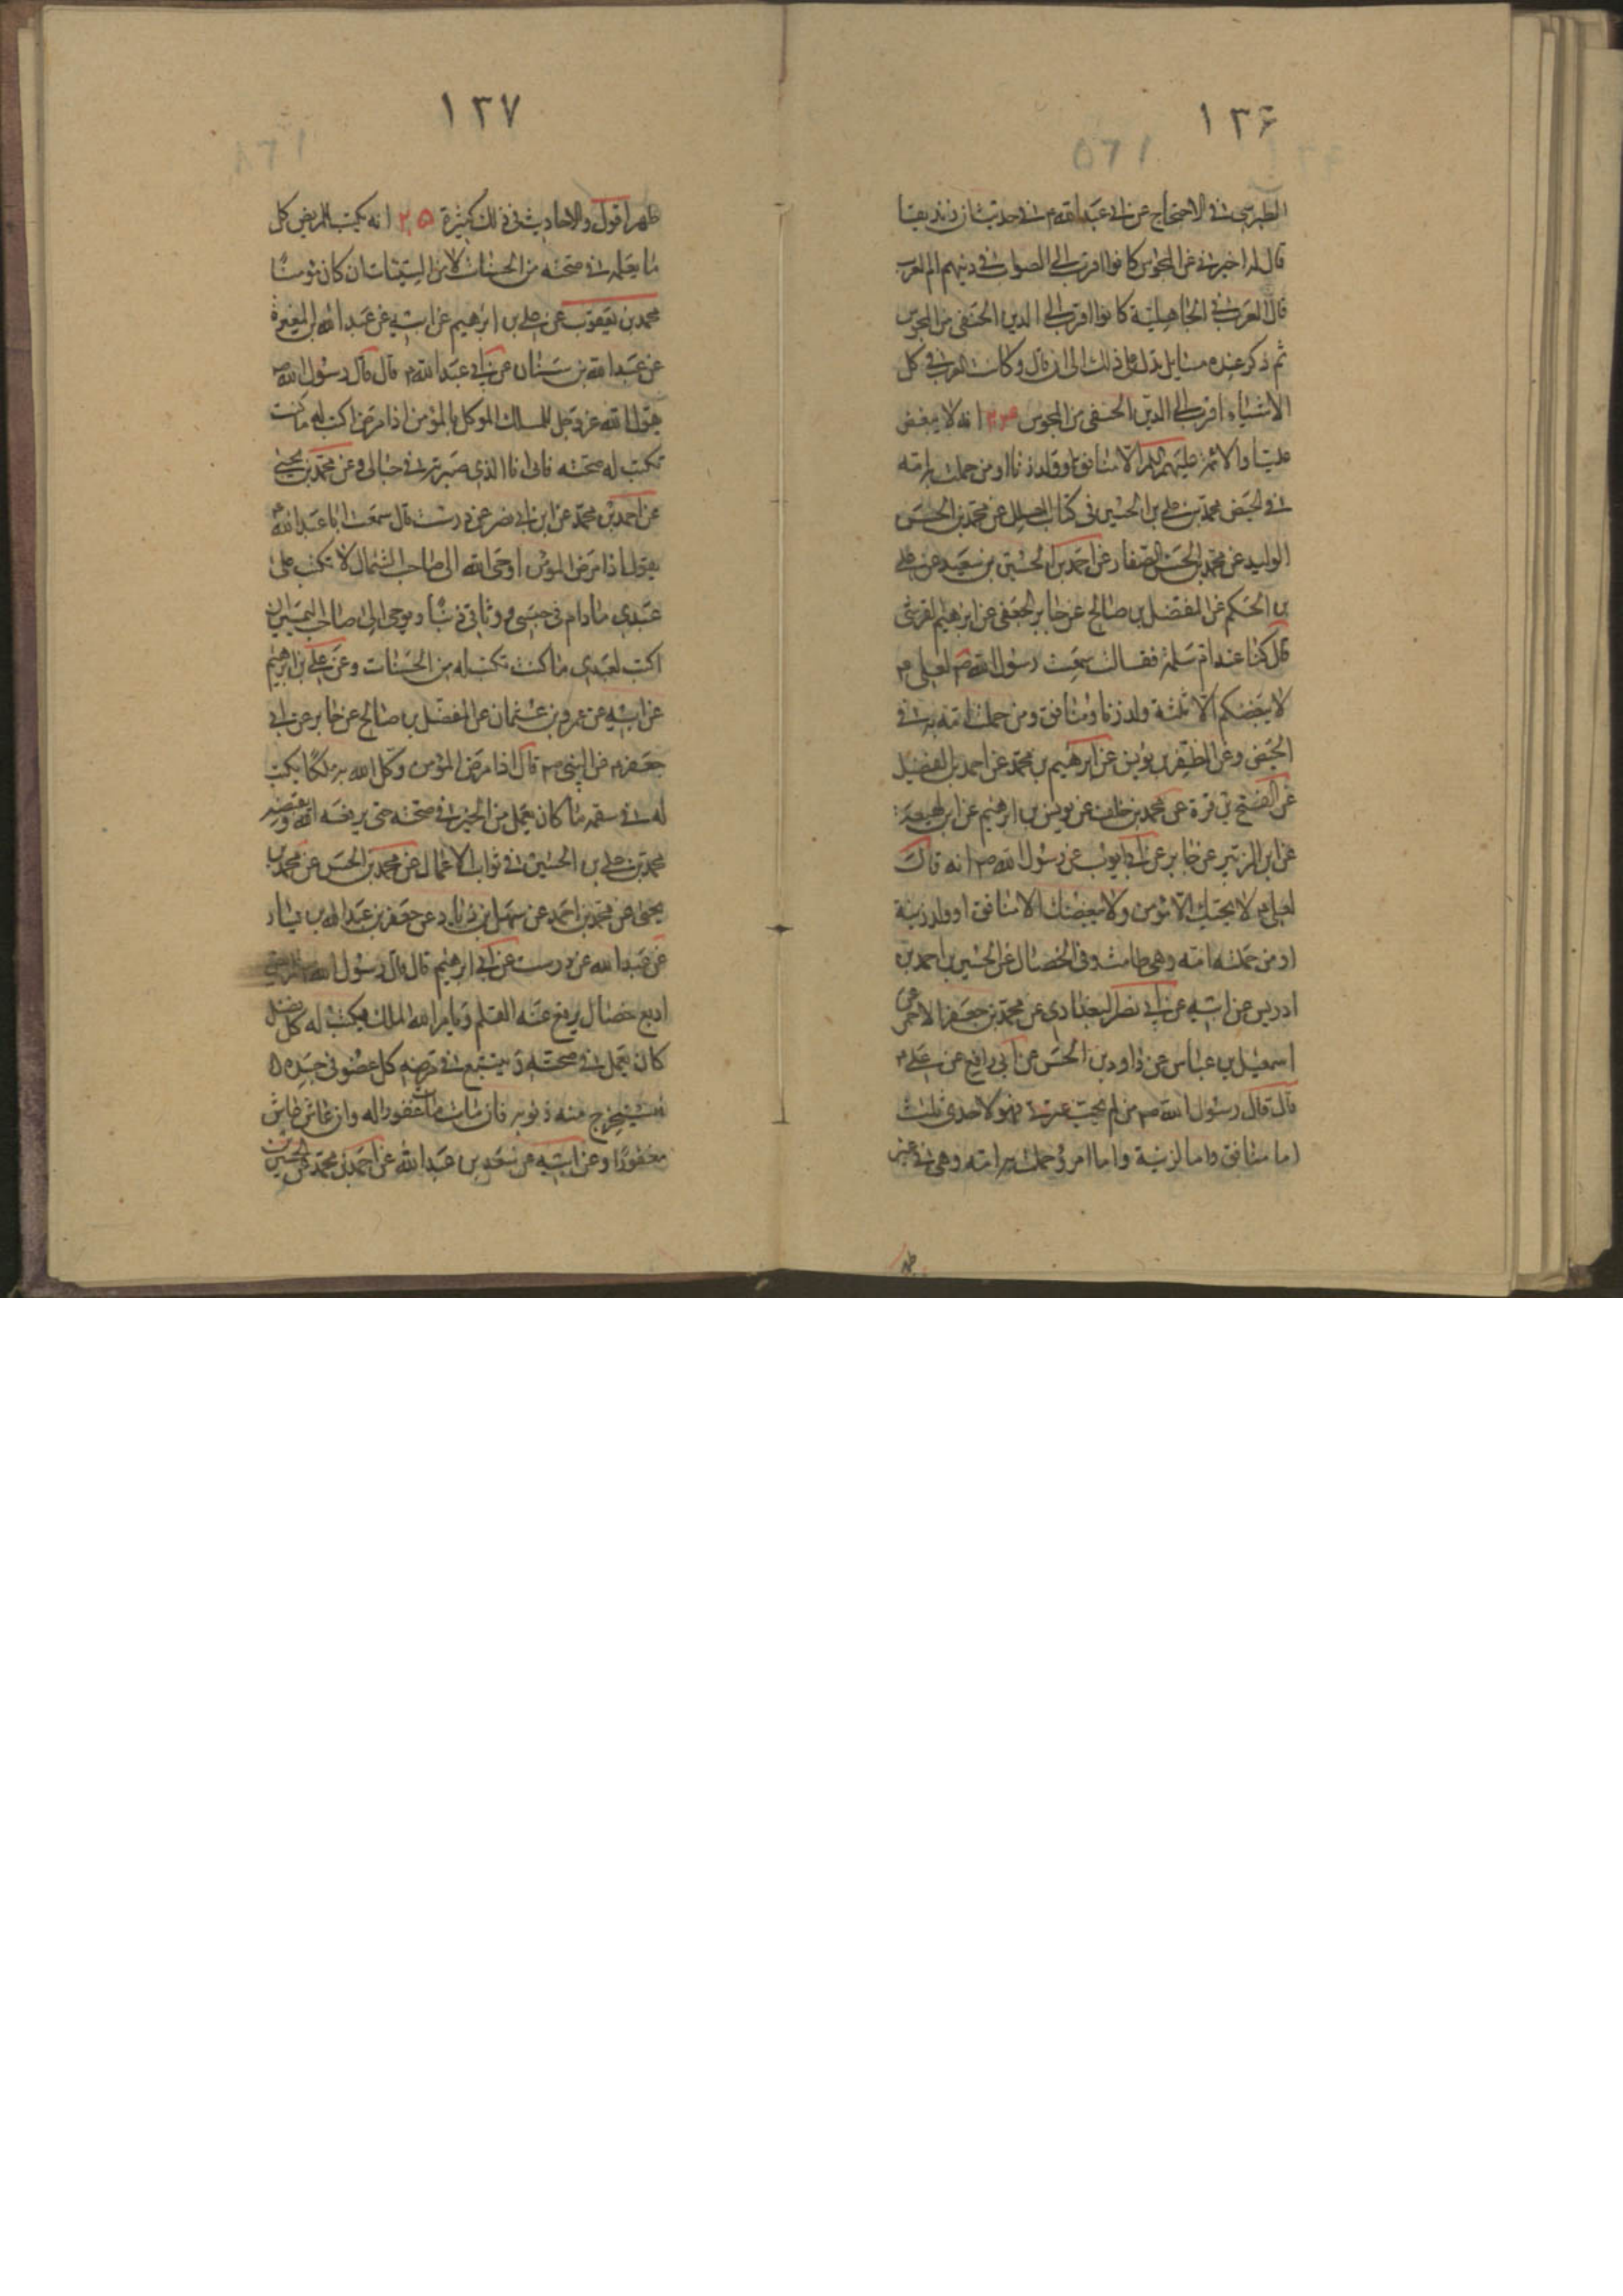 ١٣۶
الطبرسي في الاحتجاج عن ابي عبدالله م في حديث ان زنديقا
قال له اخبرني عن المجوس كانوا اقرب الى الصواب في دينهم ام العرب
قال العرب في الجاهلية كانوا اقرب الى الدين الحنفي من المجوس
ثم ذكر عنده مسايل تدل على ذلك الى ان قال وكانت العرب في كل
الاشياء اقرب الى الدين الحنفى من المجوس انه لا يبغض
عليا والائمة عليهم السلم الا منافق او ولد زنا او من حملت به امه
في الحيض محمد بن علي بن الحسين في كتاب العلل عن محمد بن الحسن
الوليد عن محمد بن الحسن الصفار عن احمد بن الحسين بن سعيد عن علي
بن الحكم عن المفضل بن صالح عن جابر الجعفى عن ابرهيم القرشي
قال كنا عند ام سلمة فقالت سمعت رسول الله ص لعلي م
لا يبغضكم الا ثلثة ولد زنا ومنافق ومن حملت امه به في
الحيض وعن المظفر بن يونس عن ابرهيم بن محمد عن احمد بن الفضيل
عن الفتح بن قرة عن محمد بن خلف عن يونس بن ابرهيم عن ابن لهيعة
عن ابن الزبير عن جابر عن ابي ايوب عن رسول الله ص انه قال
لعلي م لا يحبك الا مؤمن ولا يبغضك الا منافق او ولد زنية
او من حملته امه وهي طامث وفي الخصال عن الحسين بن احمد بن
ادريس عن ابيه عن ابي نصر البغدادي عن محمد بن جعفر الاحمر عن
اسمعيل بن عباس عن داود بن الحسن عن ابي رافع عن علي م
قال قال رسول الله ص من لم يحب عترتي فهو لاحدى ثلث
اما منافق واما لزنية واما امرؤ حملت به امه وهي في غير
طهر
١٣٧
طهر اقول والاحاديث في ذلك كثيرة ٢٥ انه يكتب للمريض كل
ما يعمله في صحته من الحسنات لا من السيئات ان كان مؤمنا
محمد بن يعقوب عن علي بن ابرهيم عن ابيه عن عبد الله بن المغيرة
عن عبد الله بن سنان عن ابي عبد الله م قال قال رسول الله ص
يقول الله عز وجل للملك الموكل بالمؤمن اذا مرض اكتب له ما كنت
تكتب له في صحته فاني انا الذي صيرته في حبالي وعن محمد بن يحيى
عن احمد بن محمد عن ابن ابي نصر عن درست قال سمعت ابا عبد الله م
يقول اذا مرض المؤمن اوحى الله الى صاحب الشمال لا تكتب على
عبدي ما دام في حبسي ووثاقي ذنبا ويوحى الى صاحب اليمين ان
اكتب لعبدي ما كنت تكتب له من الحسنات وعن علي بن ابرهيم
عن ابيه عن عمرو بن عثمان عن المفضل بن صالح عن جابر عن ابي
جعفر م عن النبي ص قال اذا مرض المؤمن وكل الله به ملكا يكتب
له في سقمه ما كان يعمل من الخير في صحته حتى يرفعه الله ويقبضه
محمد بن علي بن الحسين في ثواب الاعمال عن محمد بن الحسن عن محمد بن
يحيى عن محمد بن احمد عن سهل بن زياد عن جعفر بن عبد الله بن يسار
عن عبد الله عن درست عن ابي ابرهيم قال قال رسول الله للمريض
اربع خصال يرفع عنه القلم ويامر الله الملك فيكتب له كل فضل
كان يعمل في صحته ويتبع في مرضه كل عضو في جسده
فيستخرج منه ذنوبه فان مات مات مغفورا له وان عاش عاش
مغفورا وعن ابيه عن سعد بن عبد الله عن احمد بن محمد عن الحسين